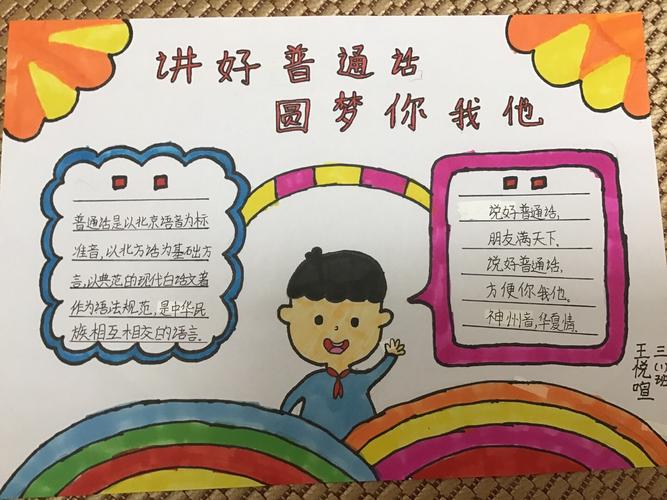 讲好普通话
圆梦你我他
普通话是以北京语音为标
准音,以北方话为基础方
言,以典范的现代白话文著
作为语法规范,是中华民
族相互相交的语言.
说好普通话,
朋友满天下.
说好普通话,
方便你我他.
神州音,华夏情.
三(1)班
王悦喧